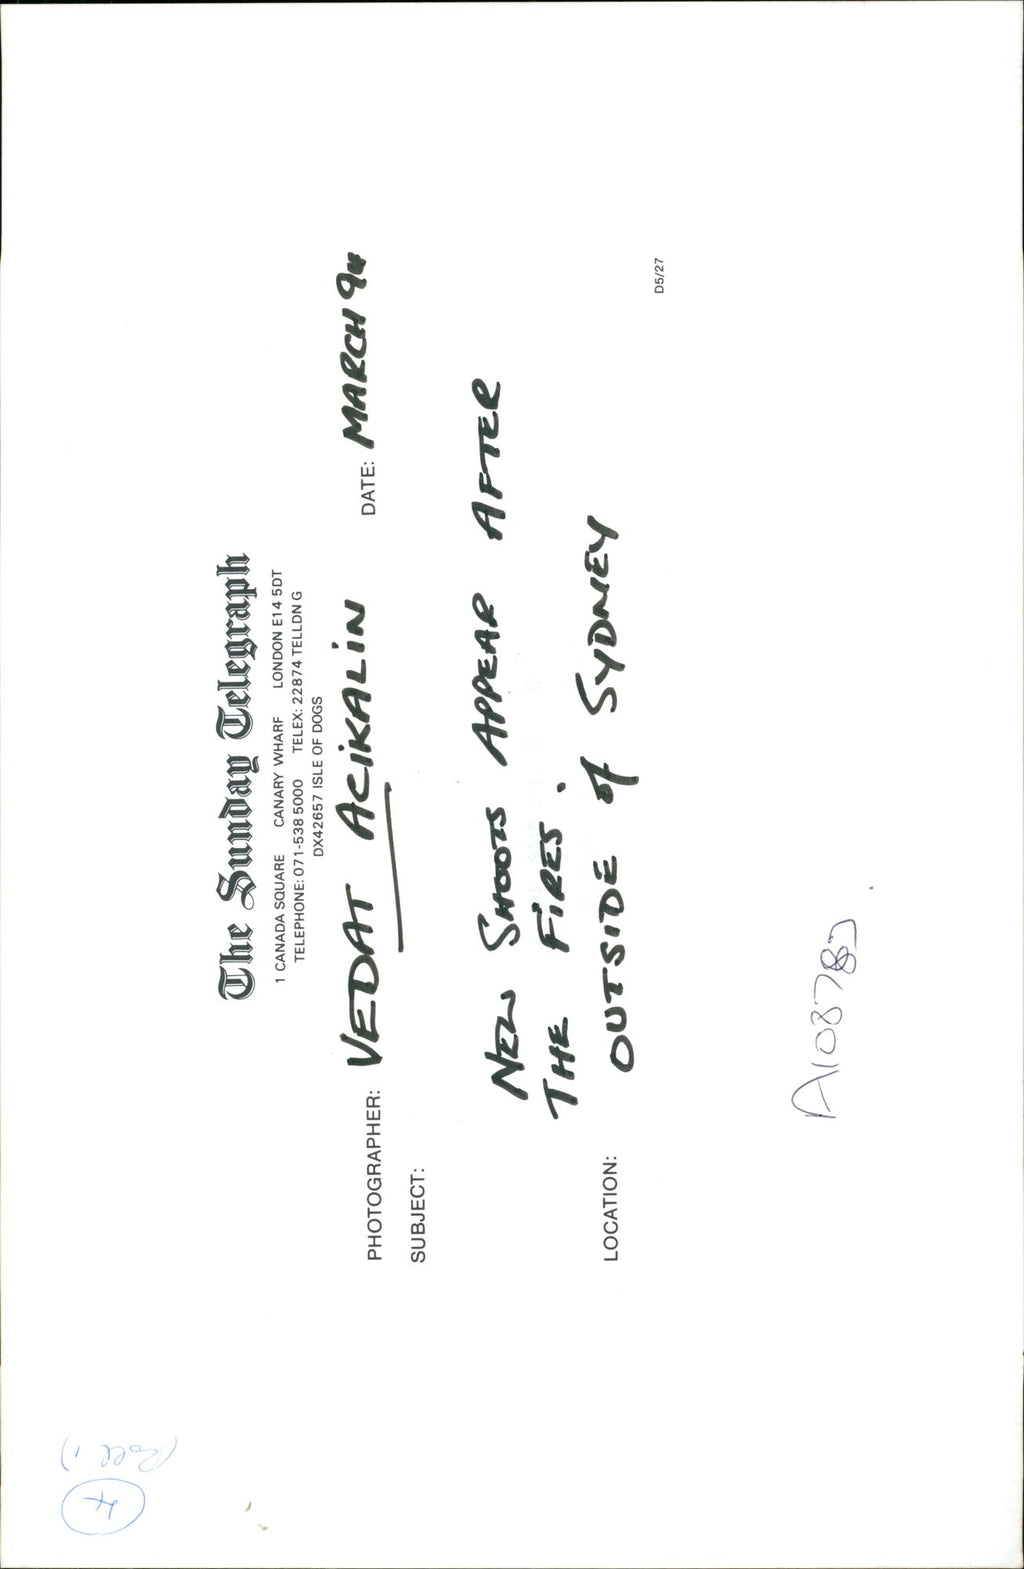 The Sunday Telegraph
1 CANADA SQUARE CANARY WHARF LONDON E14 5DT
TELEPHONE: 071-538 5000 TELEX: 22874 TELLDN G
DX42657 ISLE OF DOGS
PHOTOGRAPHER: VEDAT ACIKALIN DATE: MARCH 94
SUBJECT:
NEW SHOOTS APPEAR AFTER
THE FIRES.
LOCATION: OUTSIDE of SYDNEY
D5/27
A108783
4
(Roll 1)